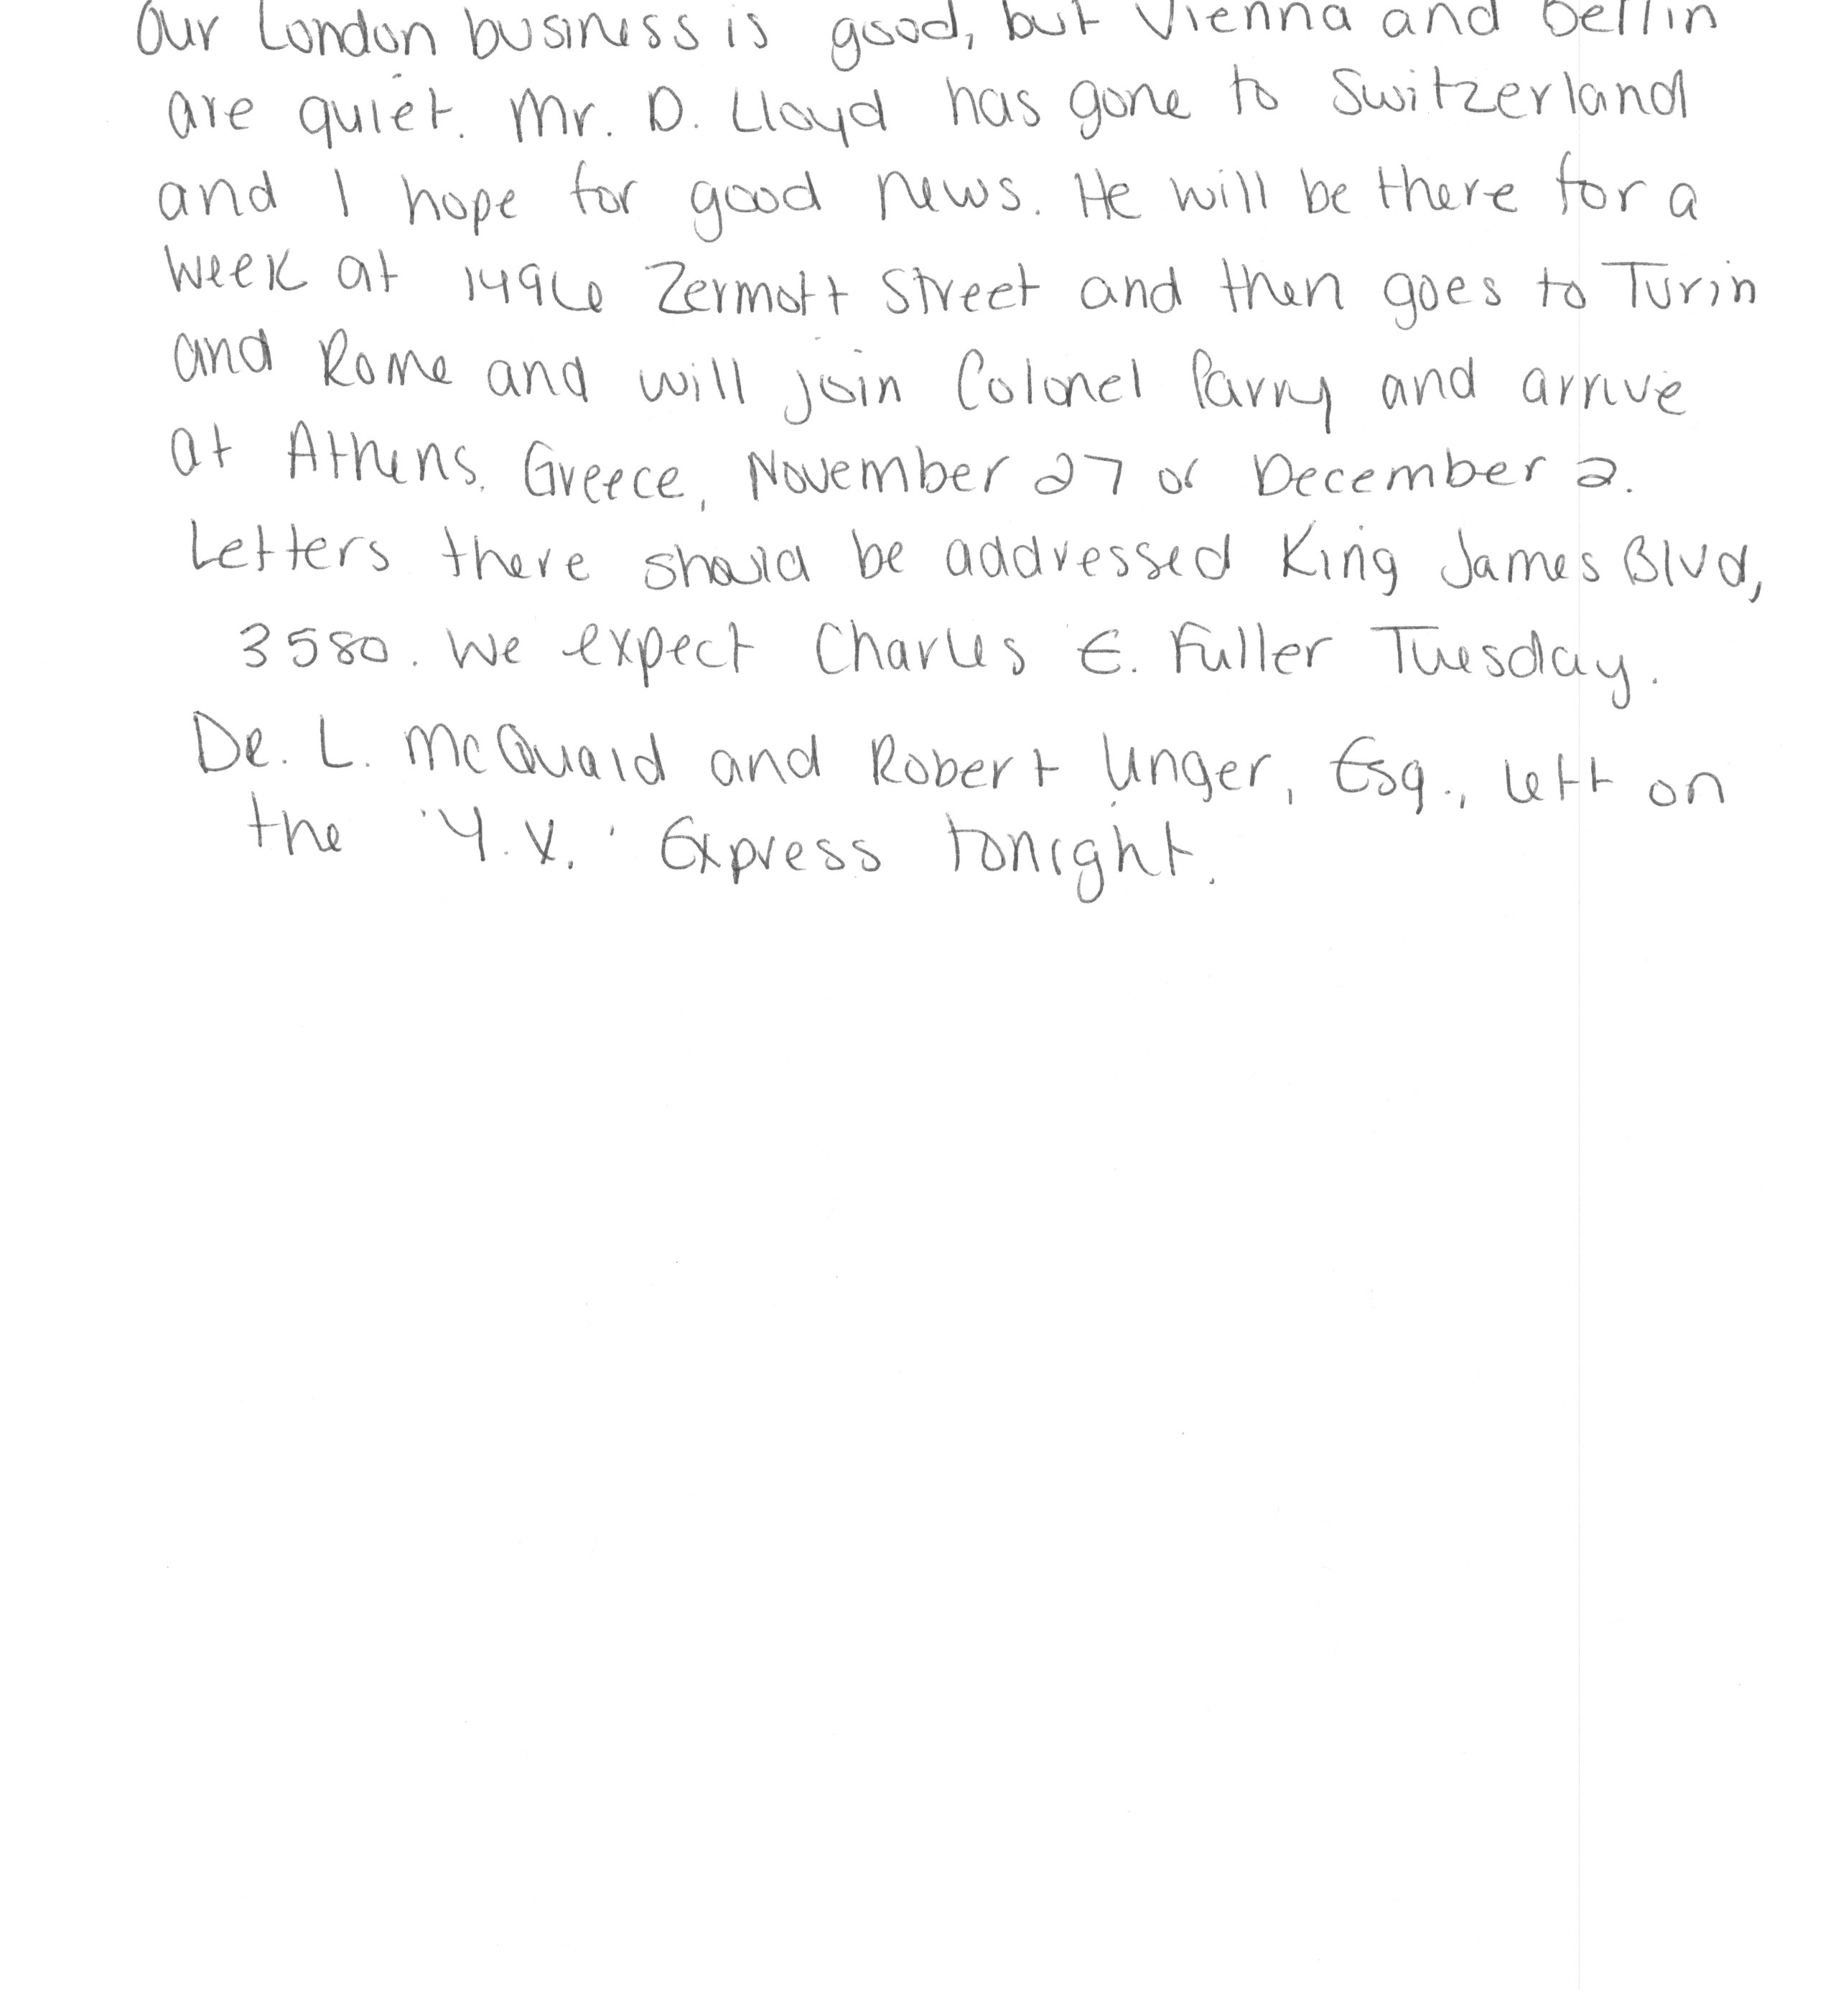 Our London business is good, but Vienna and Berlin
are quiet. Mr. D. Lloyd has gone to Switzerland
and I hope for good news. He will be there for a
week at 1496 Zermott Street and then goes to Turin
and Rome and will join Colonel Parry and arrive
at Athens, Greece, November 27 or December 2.
Letters there should be addressed King James Blvd,
3580. We expect Charles E. Fuller Tuesday.
Dr. L. McQuaid and Robert Unger, Esq., left on
the 'Y.X.' Express tonight.